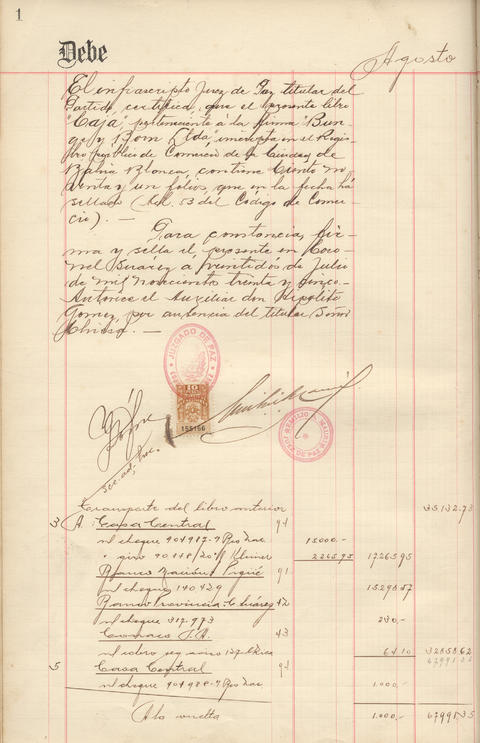 1
Debe
Agosto
El infrascripto Juez de Paz titular del
Partido, certifica, que el presente libro
"Caja", perteneciente á la firma "Bun-
ge y Born Ltda", inscripta en el Regis-
tro Público de Comercio de la Ciudad de
Bahía Blanca, contiene Ciento no
venta y un fólios, que en la fecha há
sellado (Art. 53 del Código de Comer-
cio). —
Para constancia, fir-
ma y sella el presente en Coro-
nel Suarez a veintidós de Julio
de mil novecientos treinta y cinco.
Autorice el Auxiliar don Hipólito
Gomez, por ausencia del titular Señor
JUZGADO DE PAZ
10
155156
JUEZ DE PAZ
Transporte del libro anterior 35.132.73
3 A Casa Central 94
n/ cheque 404987-7 15.000.-
" giro 90448/20 2265.95 17265.95
Banco Nación Pigüé 91
n/ cheque 140439 15298.57
Banco Provincia C. Suárez 42
n/ cheque 317973 230.-
43
64.10 32858.62
67991.35
5 Casa Central 94
n/ cheque 404988-7 1.000.-
A la vuelta 1.000.- 67991.35